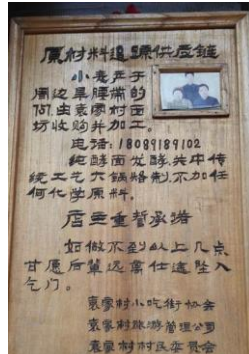 原材料追踪供应链
小麦产于
周边旱腰带的
问.由袁家村面
坊收购并加工。
电话:18089189102
纯酵面发酵关中传
统工艺大锅烙制.不加任
何化学原料。
店主重誓承诺
如做不到以上几点
甘愿后辈远离仕途坠入
乞门。
袁家村小吃街协会
袁家村旅游管理公司
袁家村村民委员会